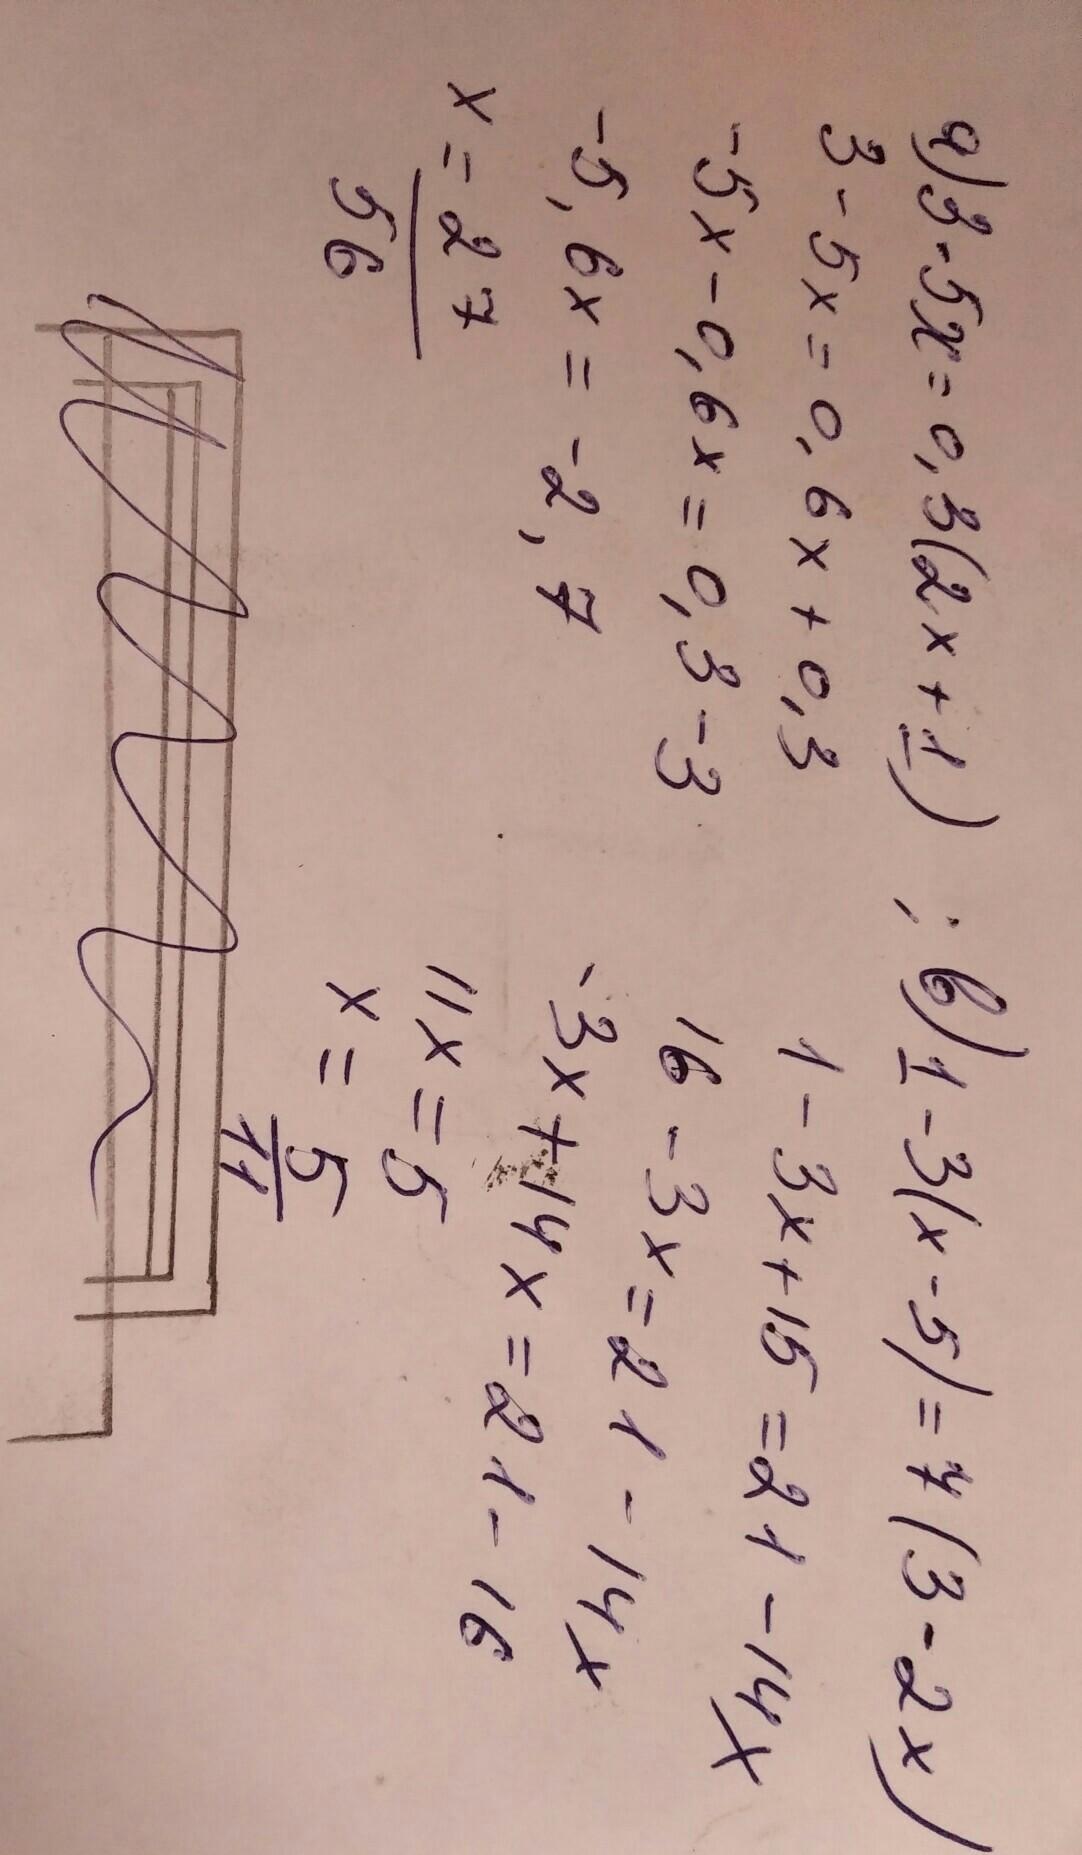 а) 3-5x=0,3(2x+1)
3-5x=0,6x+0,3
-5x-0,6x=0,3-3
-5,6x=-2,7
x=27
56
; в) 1-3(x-5)=7(3-2x)
1-3x+15=21-14x
16-3x=21-14x
-3x+14x=21-16
11x=5
x=5
11